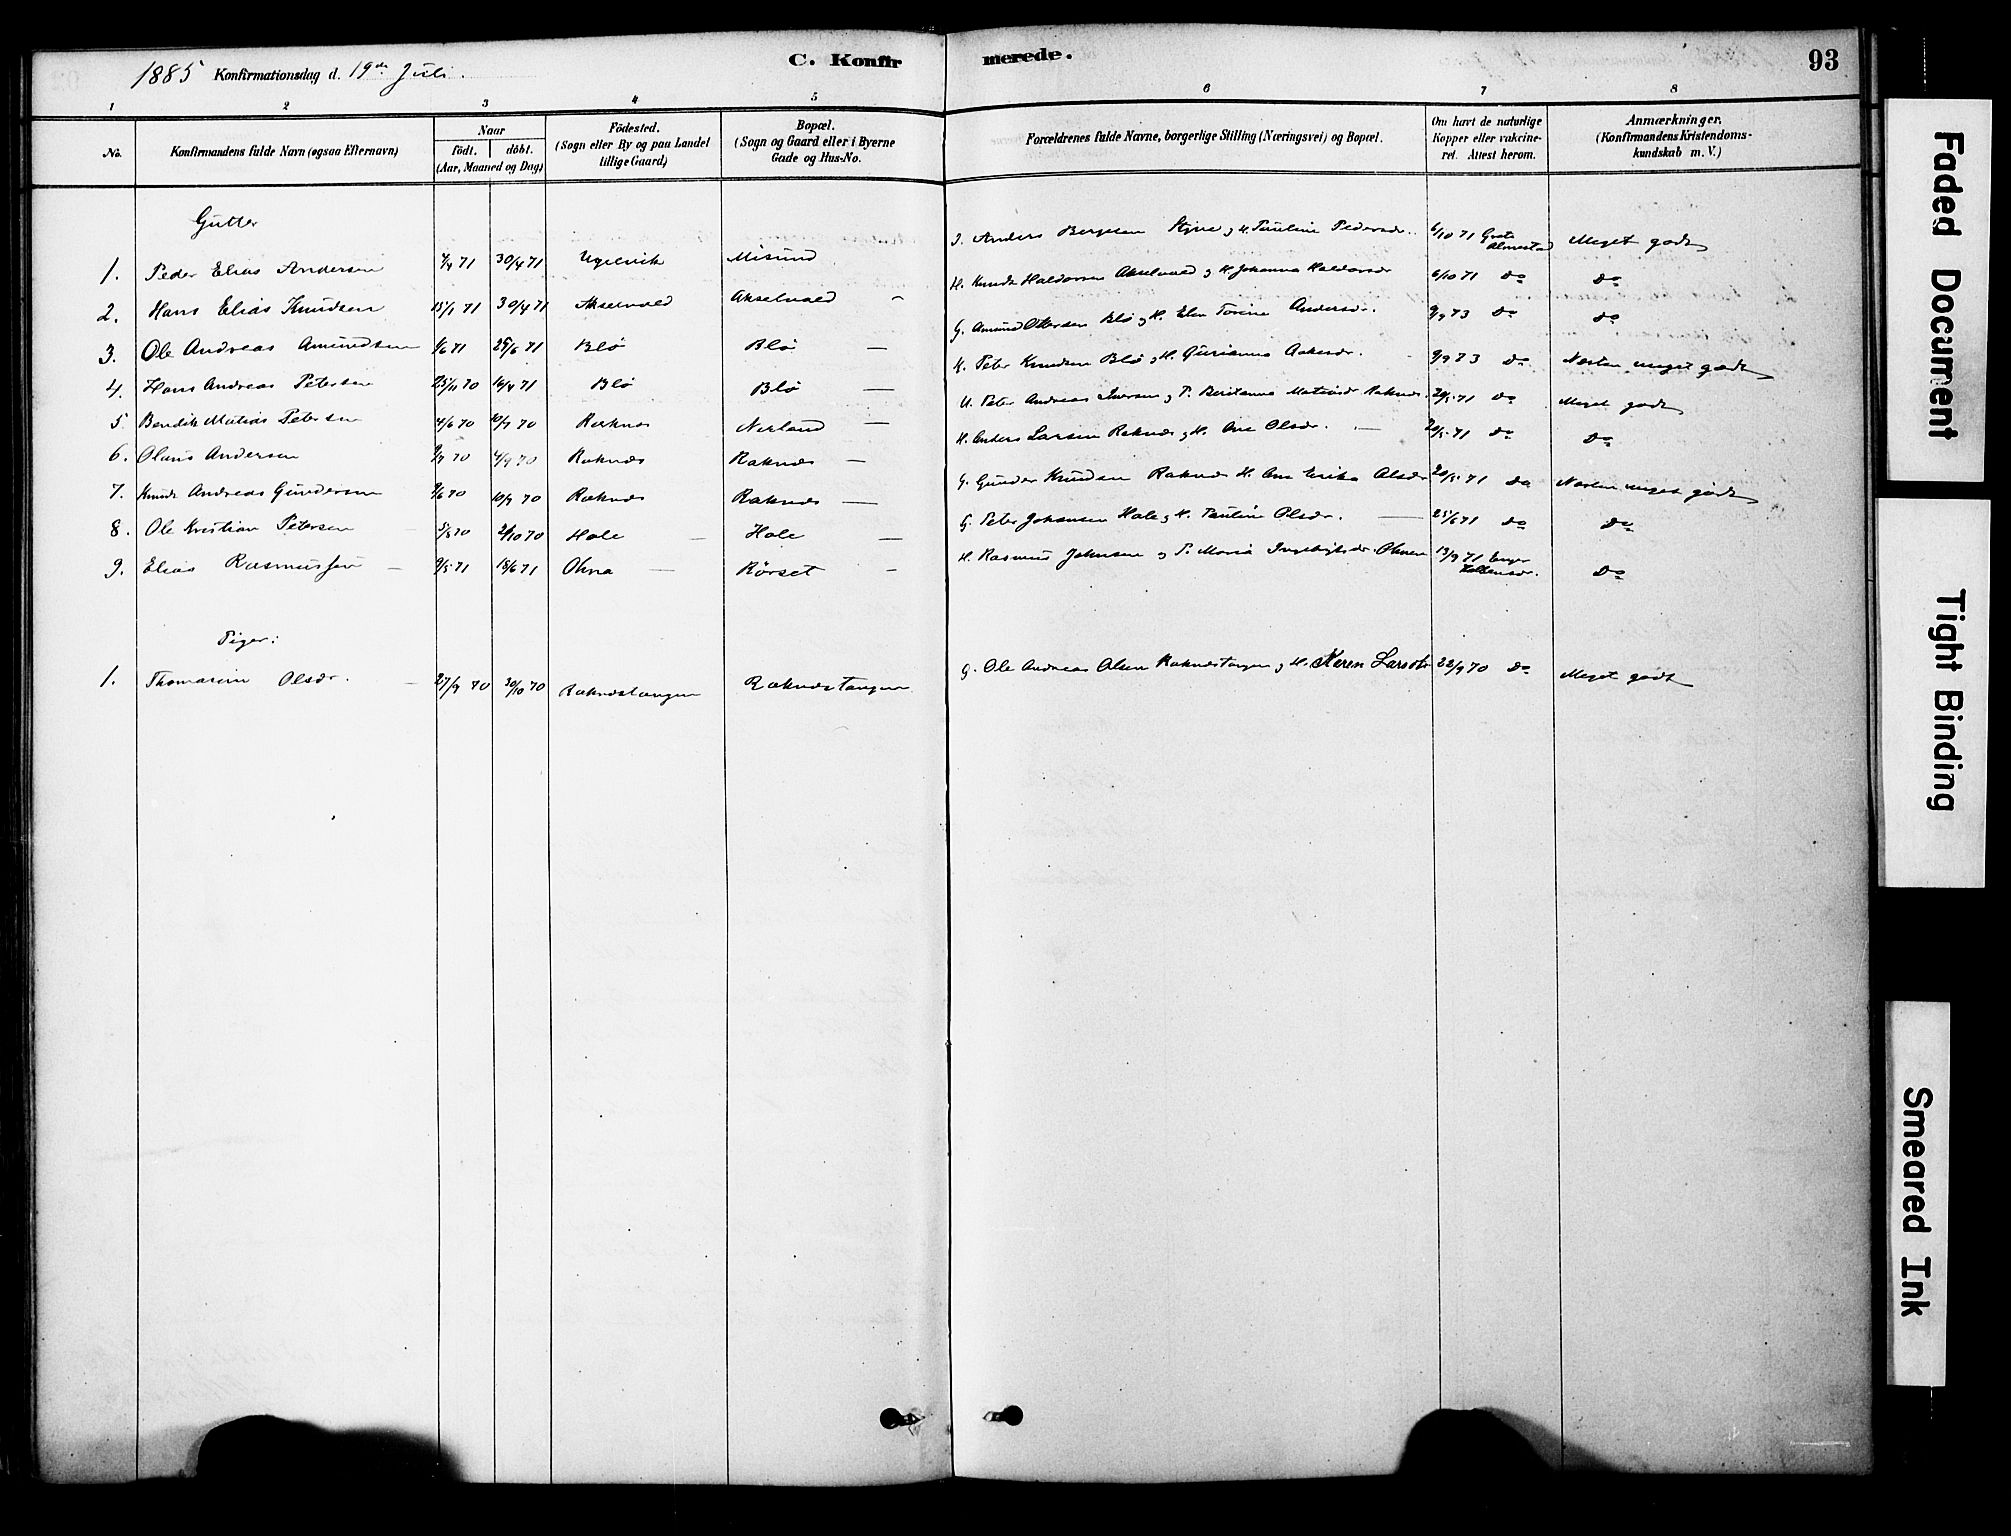 1885 Konfirmationsdag d. 19de Juli.
C. Konfirmerede.
93
1 2 3 4 5 6 7 8
No.
Konfirmandens fulde Navn (ogsaa Efternavn)
Naar
födt. döbt.
(Aar, Maaned og Dag)
Födested.
(Sogn eller By og paa Landet
tillige Gaard)
Bopæl.
(Sogn og Gaard eller i Byerne
Gade og Hus-No.
Forældrenes fulde Navne, borgerlige Stilling (Næringsvei) og Bopæl.
Om havt de naturlige
Kopper eller vakcine-
ret. Attest herom.
Anmærkninger.
(Konfirmandens Kristendoms-
kundskab m. V.)
Gutter
1. Peder Elias Andersen 71 30/4 71 Ugelvik Misund I. Anders Bergesen og H. Pauline Pedersdr. 6/10 71 Meget godt
2. Hans Elias Knudsen 15/1 71 30/4 71 Akselvold Akselvold H. Knudt Haldorsen Akselvold og H. Johanna Haldorsdr 6/10 71 Do Do
3. Ole Andreas Amundsen 1/6 71 25/6 71 Blö Blö — G. Amund Ottersen Blö og H. Elen Torine Andersdr. 9/9 73 Do Do
4. Hans Andreas Petersen 25/11 70 16/4 71 Blö Blö — H. Peter Knudsen Blö og H. Gurianna Aakesdr. 9/9 73 Do Næsten meget godt
5 Bendik Matias Petersen 4/6 70 10/7 70 Raknæs Nerland — U. Peter Andreas Iversen og P. Beritanna Matiasdr Raknæs. 20/5 71 Do Meget godt
6. Olaus Andersen 70 4/9 70 Raknæs Raknæs — H. Anders Larsen Raknæs og H. Ane Olsdr. — 20/5 71 Do Do
7. Knudt Andreas Gundersen 9/6 70 10/7 70 Raknæs Raknæs — G. Gunder Knudsen Raknæs H. Ane Erika Olsdr 20/5 71 Do Næsten meget godt
8. Ole Kristian Petersen 5/8 70 2/10 70 Hole — Hole — G. Peter Johansen Hole og H. Pauline Olsdr. — 25/6 71 Do Do
9. Elias Rasmussen — 9/5 71 18/6 71 Ohna — Rörset — H. Rasmus Johnsen og P. Maria Ingebrigtsdr. 13/9 71 Do
Piger:
1. Thomasine Olsdr. — 27/9 70 30/10 70 Raknæstangen Raknæstangen G. Ole Andreas Olsen Raknæstangen og H. Karen Larsdtr 22/9 70 Do Meget godt
Faded Document
Tight Binding
Smeared Ink